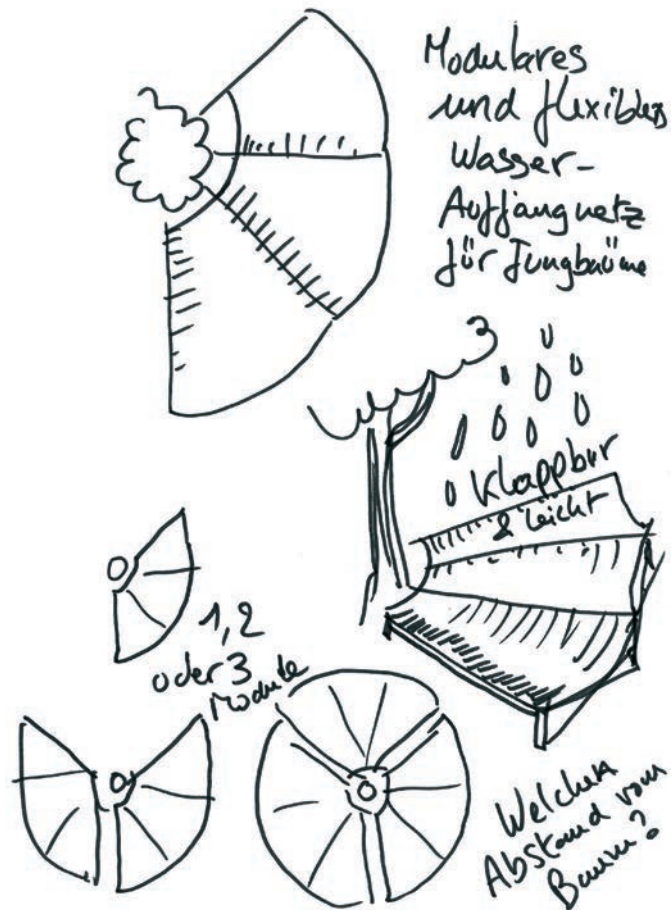 Modulares
und flexibles
Wasser-
Auffangnetz
für Jungbäume
Klappbar
& leicht
1, 2
oder 3
Module
Welchen
Abstand vom
Baum?